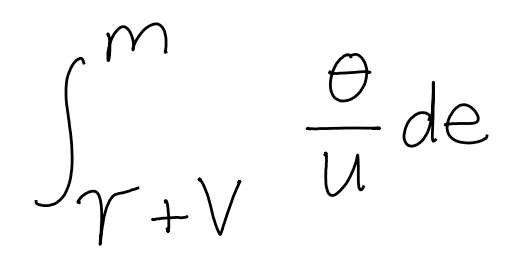 \int_{\gamma+V}^{m} \frac{\theta}{u} de